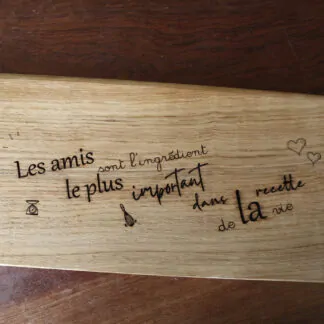 Les amis sont l'ingrédient
le plus important
dans la recette
de la vie